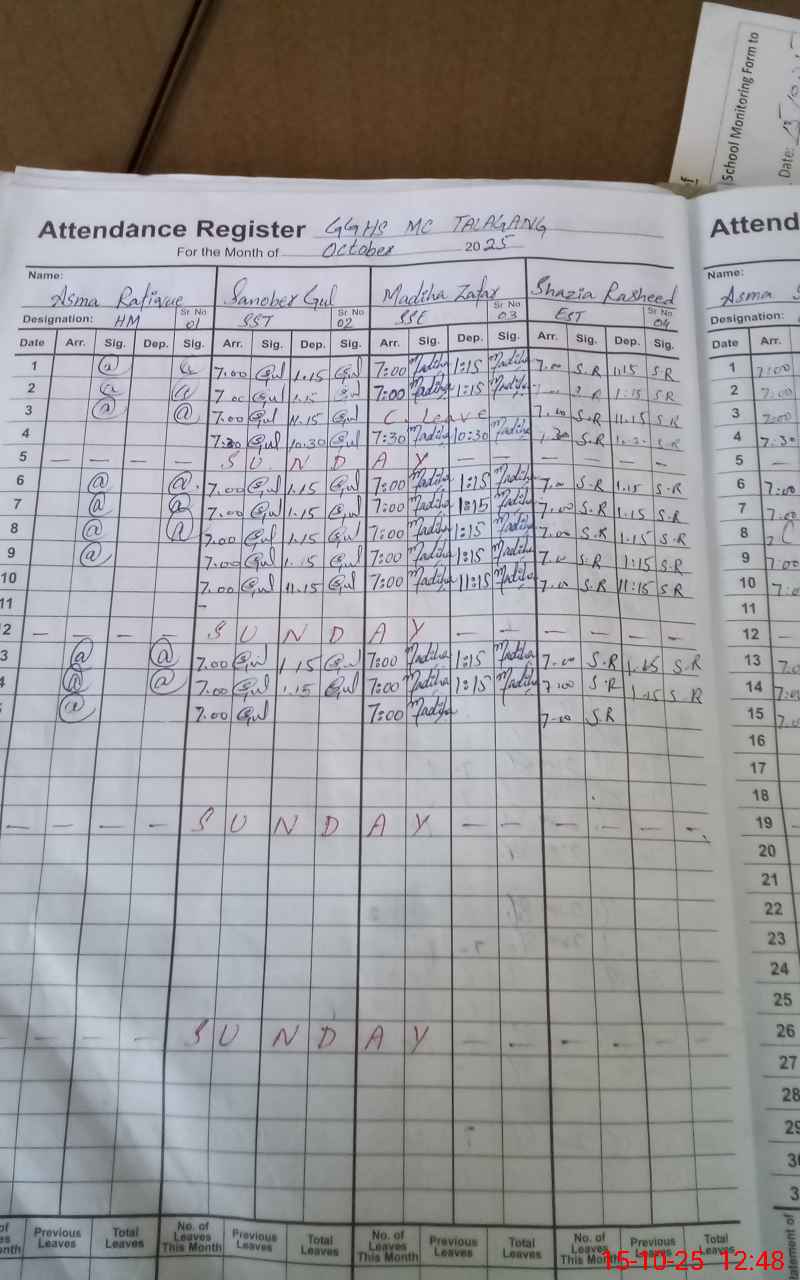 School Monitoring Form to
Date:
Attendance Register GGHS MC TALAGANG
For the Month of October 2025
Name: Asma Rafique Sanober Gul Madiha Zafar Shazia Rasheed
Designation: HM Sr. No 01 SST Sr. No 02 SSE Sr. No 03 EST Sr. No 04
Date Arr. Sig. Dep. Sig. Arr. Sig. Dep. Sig. Arr. Sig. Dep. Sig. Arr. Sig. Dep. Sig.
1 7.00 Gul 1.15 Gul 7:00 Madiha 1:15 Madiha 7.00 S.R 1.15 S.R
2 7.00 Gul 1.15 Gul 7:00 Madiha 1:15 Madiha 1:15 S.R
3 7.00 Gul 11.15 Gul C. Leave 7.00 S.R 11.15 S.R
4 7:30 Gul 10.30 Gul 7:30 Madiha 10:30 Madiha S.R S.R
5 — — — — S U N D A Y — — — — — —
6 7.00 Gul 1.15 Gul 7:00 Madiha 1:15 Madiha 7.00 S.R 1.15 S.R
7 7.00 Gul 1.15 Gul 7:00 Madiha 1:15 Madiha 7.00 S.R 1.15 S.R
8 7.00 Gul 1.15 Gul 7:00 Madiha 1:15 Madiha 7.00 S.R 1.15 S.R
9 7.00 Gul 1.15 Gul 7:00 Madiha 1:15 Madiha 7.00 S.R 1:15 S.R
10 7.00 Gul 11.15 Gul 7:00 Madiha 11:15 Madiha 7.00 S.R 11:15 S.R
11
2 — — — — S U N D A Y — — — — — —
3 7.00 Gul 1.15 Gul 7:00 Madiha 1:15 Madiha 7.00 S.R 1.15 S.R
4 7.00 Gul 1.15 Gul 7:00 Madiha 1:15 Madiha 7:00 S.R 1.15 S.R
7.00 Gul 7:00 Madiha 7.00 S.R
— — — — S U N D A Y — — — — — —
— — — — S U N D A Y — — — — — —
Previous Leaves Total Leaves No. of Leaves This Month Previous Leaves Total Leaves No. of Leaves This Month Previous Leaves Total Leaves No. of Leaves This Month Previous Leaves Total Leaves
Attend
Name:
Asma
Designation:
Date Arr.
1 7:00
2 7:00
3 7:00
4 7:30
5 —
6 7:00
7 7.00
8 C
9 7:00
10 7:0
11
12 —
13 7.0
14 7:00
15 7.0
16
17
18
19
20
21
22
23
24
25
26
27
28
29
30
3
15-10-25 12:48